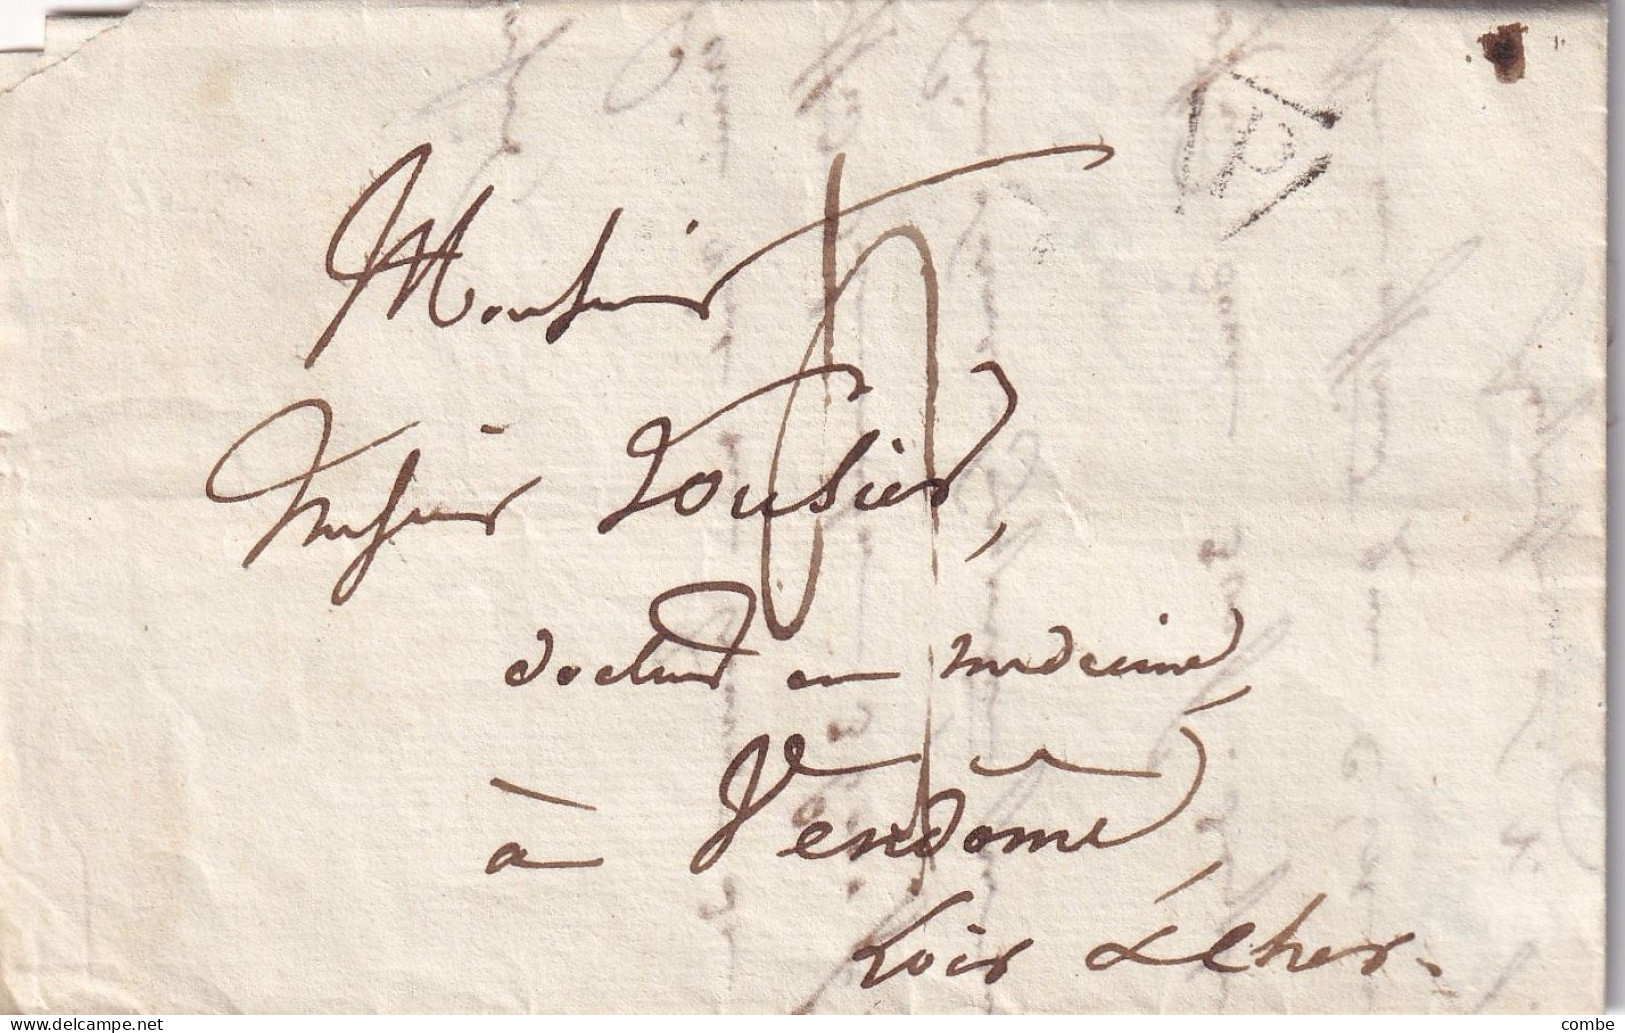 P
Monsieur
Monsieur Lousier,
docteur en medecine,
à Vendome,
Loir & cher.
www.delcampe.net
combe